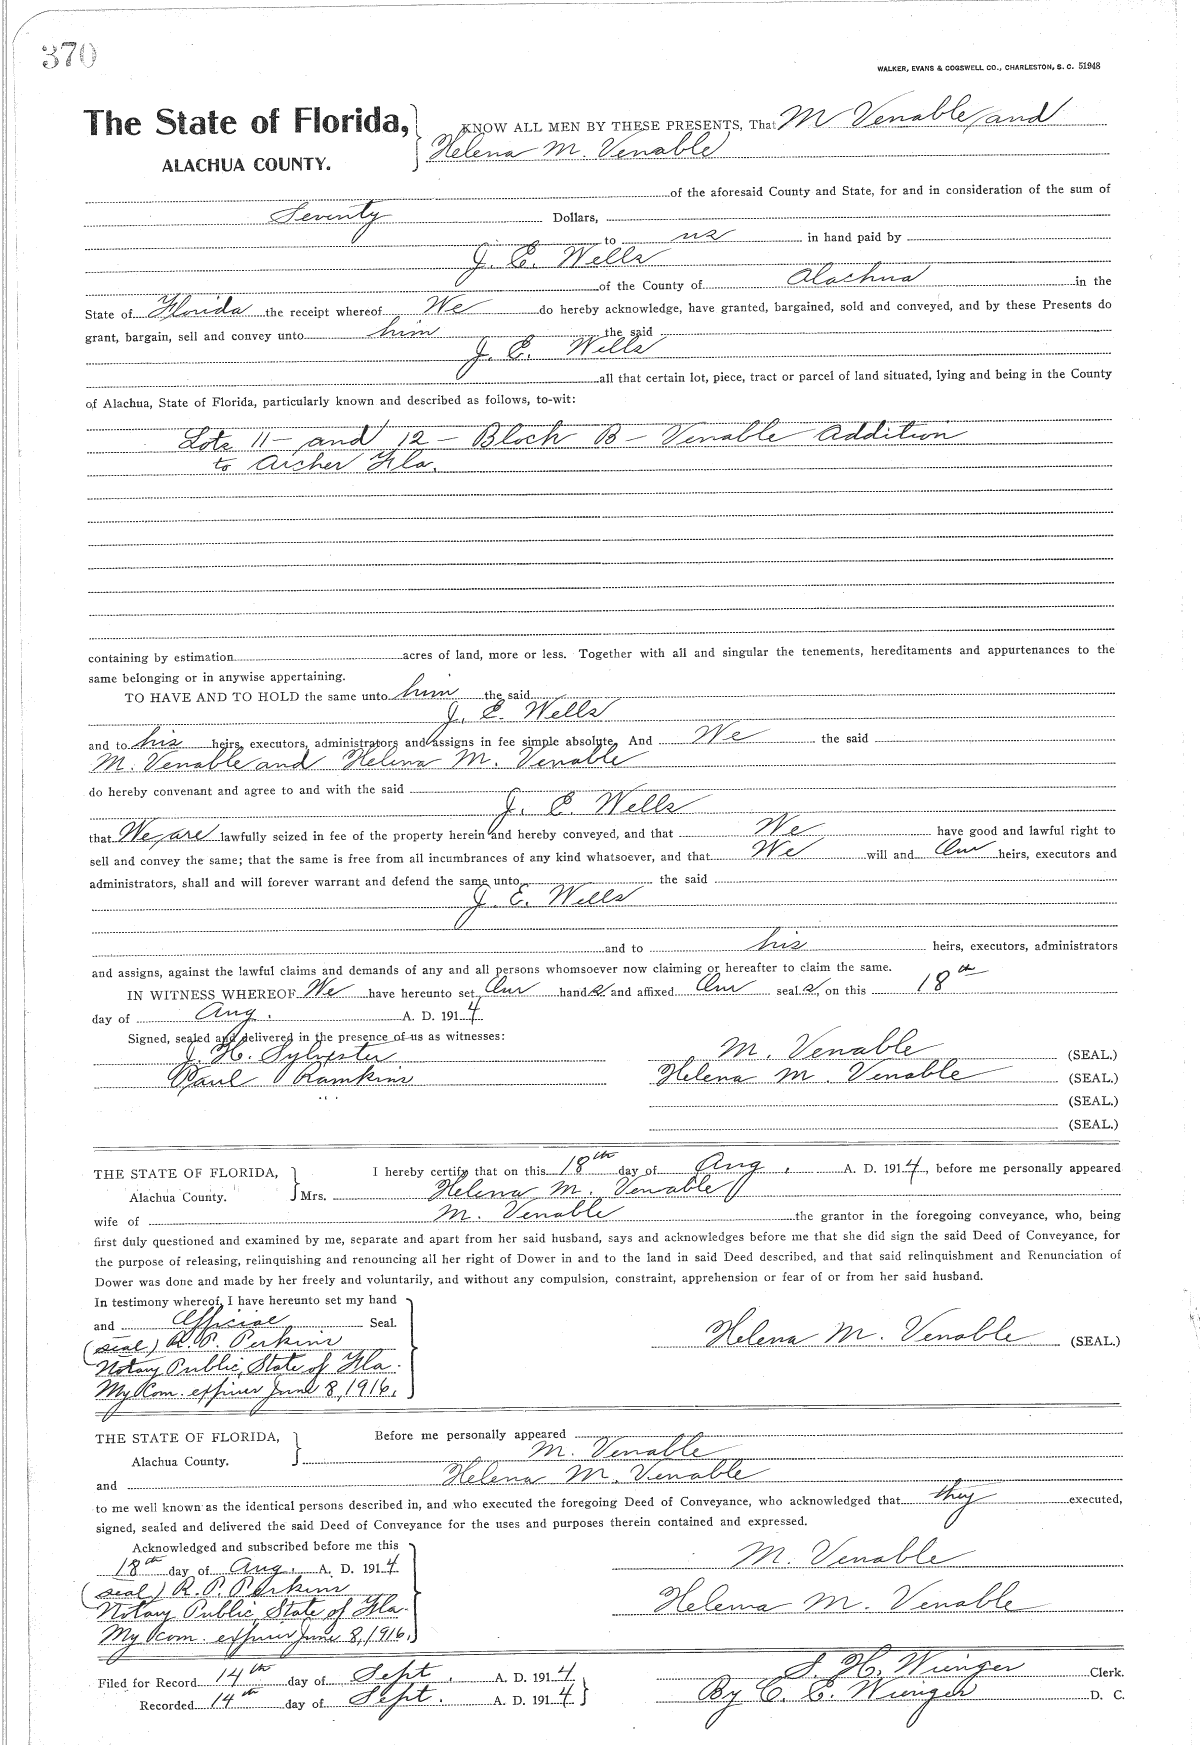 370
WALKER, EVANS & COGSWELL CO., CHARLESTON, S. C. 51948
The State of Florida,
ALACHUA COUNTY.
KNOW ALL MEN BY THESE PRESENTS, That M Venable and
Helena M. Venable
of the aforesaid County and State, for and in consideration of the sum of
Seventy Dollars,
to us in hand paid by
J. E. Wells
of the County of Alachua in the
State of Florida the receipt whereof We do hereby acknowledge, have granted, bargained, sold and conveyed, and by these Presents do
grant, bargain, sell and convey unto him the said
J. E. Wells
all that certain lot, piece, tract or parcel of land situated, lying and being in the County
of Alachua, State of Florida, particularly known and described as follows, to-wit:
Lots 11 - and 12 - Block B - Venable Addition
to Archer Fla.
containing by estimation acres of land, more or less. Together with all and singular the tenements, hereditaments and appurtenances to the
same belonging or in anywise appertaining.
TO HAVE AND TO HOLD the same unto him the said
J. E. Wells
and to his heirs, executors, administrators and assigns in fee simple absolute. And We the said
M. Venable and Helena M. Venable
do hereby convenant and agree to and with the said
J. E. Wells
that We are lawfully seized in fee of the property herein and hereby conveyed, and that We have good and lawful right to
sell and convey the same; that the same is free from all incumbrances of any kind whatsoever, and that We will and Our heirs, executors and
administrators, shall and will forever warrant and defend the same unto the said
J. E. Wells
and to his heirs, executors, administrators
and assigns, against the lawful claims and demands of any and all persons whomsoever now claiming or hereafter to claim the same.
IN WITNESS WHEREOF We have hereunto set Our hands and affixed Our seals, on this 18th
day of Aug. A. D. 1914
Signed, sealed and delivered in the presence of us as witnesses:
J. H. Sylvester
M. Venable (SEAL.)
Paul Ramkin
Helena M. Venable (SEAL.)
(SEAL.)
(SEAL.)
THE STATE OF FLORIDA,
Alachua County.
I hereby certify that on this 18th day of Aug. A. D. 1914, before me personally appeared
Mrs. Helena M. Venable
wife of M. Venable the grantor in the foregoing conveyance, who, being
first duly questioned and examined by me, separate and apart from her said husband, says and acknowledges before me that she did sign the said Deed of Conveyance, for
the purpose of releasing, relinquishing and renouncing all her right of Dower in and to the land in said Deed described, and that said relinquishment and Renunciation of
Dower was done and made by her freely and voluntarily, and without any compulsion, constraint, apprehension or fear of or from her said husband.
In testimony whereof, I have hereunto set my hand
and Official Seal.
(seal) R. P. Perkins
Helena M. Venable (SEAL.)
Notary Public, State of Fla.
My Com. expires June 8, 1916.
THE STATE OF FLORIDA,
Alachua County.
Before me personally appeared
M. Venable
and Helena M. Venable
to me well known as the identical persons described in, and who executed the foregoing Deed of Conveyance, who acknowledged that they executed,
signed, sealed and delivered the said Deed of Conveyance for the uses and purposes therein contained and expressed.
Acknowledged and subscribed before me this
18th day of Aug. A. D. 1914
M. Venable
(seal) R. P. Perkins
Notary Public, State of Fla.
Helena M. Venable
My Com. expires June 8, 1916.
Filed for Record 14th day of Sept. A. D. 1914
S. H. Wienges Clerk.
Recorded 14th day of Sept. A. D. 1914
By C. E. Wienges D. C.